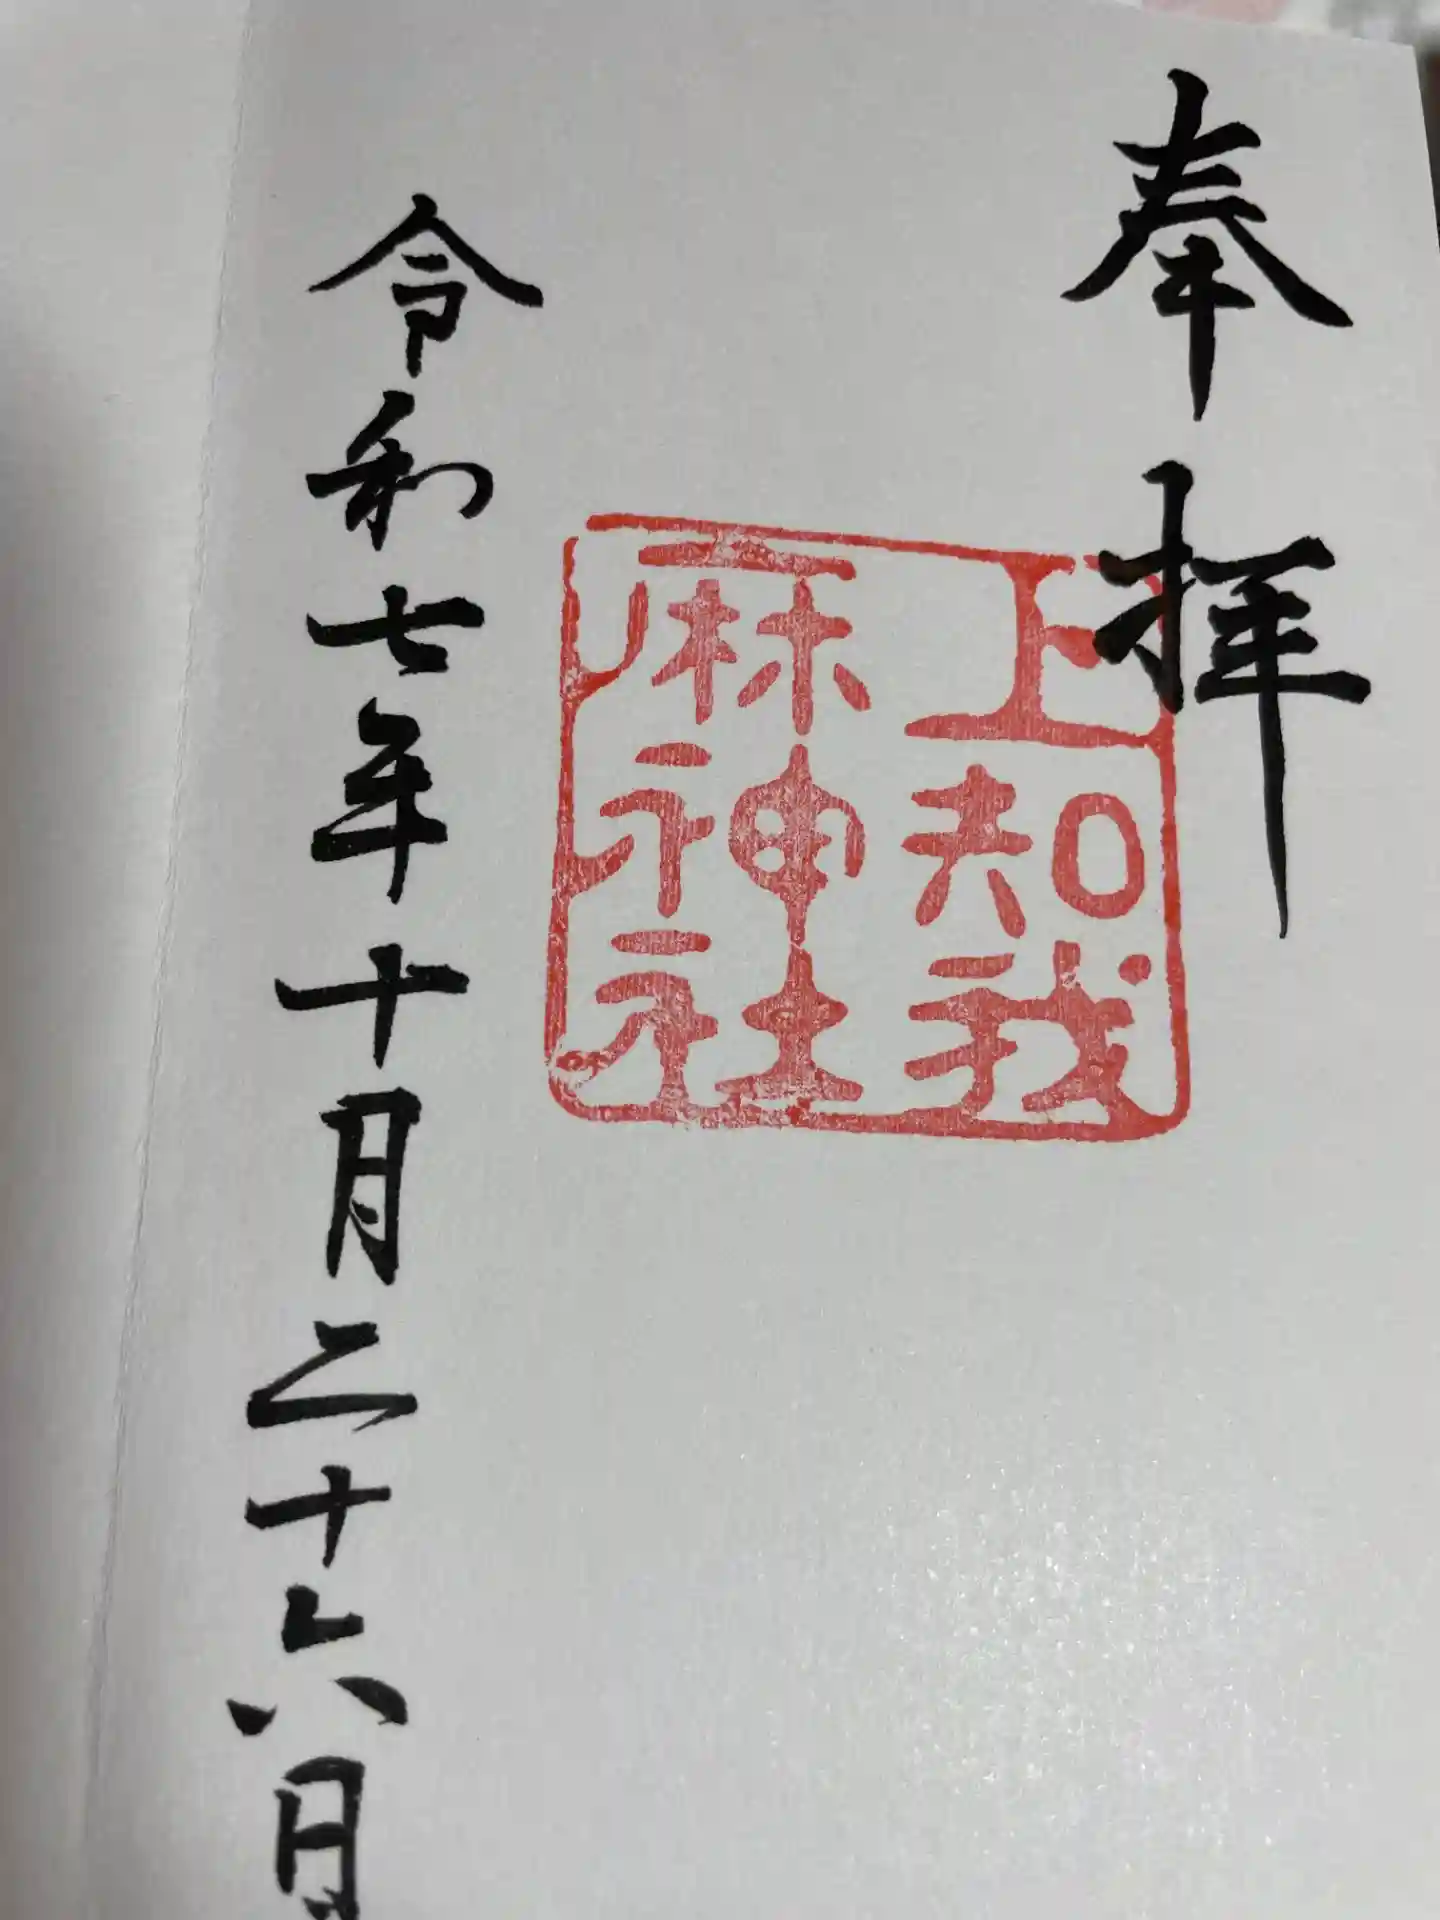 奉拝
上知我
麻神社
令和七年十月二十六日